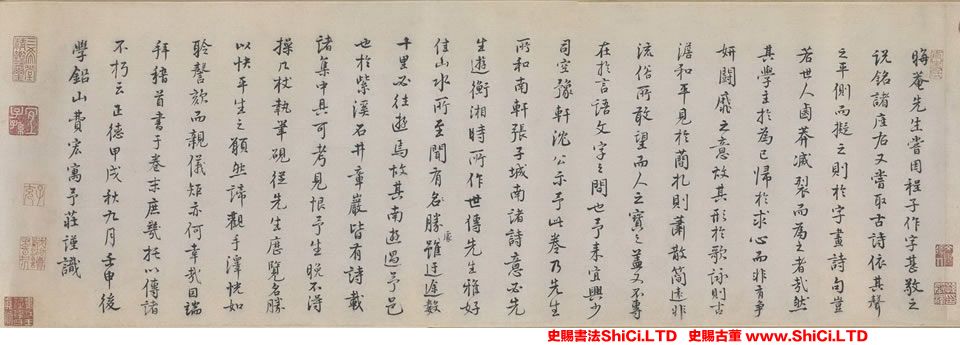 晦菴先生嘗因程子作字甚敬之
說銘諸座右又嘗取古詩依其聲
之平側而擬之則於字畫詩句豈
若世人鹵莽滅裂而為之者哉然
其學主於為己歸於求心而非有爭
妍鬪靡之意故其形於歌詠則古
澹和平見於簡札則蕭散簡遠非
流俗所敢望而人之寶之蓋又不專
在於言語文字之間也予來宜興少
司空豫軒沈公示予此卷乃先生
所和南軒張子城南諸詩意必先
生遊衡湘時所作世傳先生雅好
佳山水所至聞有名勝處雖迂途數
十里必往遊焉故其南遊過予邑
也於紫溪石井章巖皆有詩載
諸集中具可考見恨予生晚不得
操几杖執筆硯從先生歷覽名勝
以快平生之願然諦觀手澤恍如
聆謦欬而親儀矩亦何幸哉因瑞
拜稽首書于卷末庶幾托以傳諸
不朽云正德甲戌秋九月壬申後
學鉛山費宏寓予莊謹識
史賜書法ShiCi.LTD 史賜古董 www.ShiCi.LTD